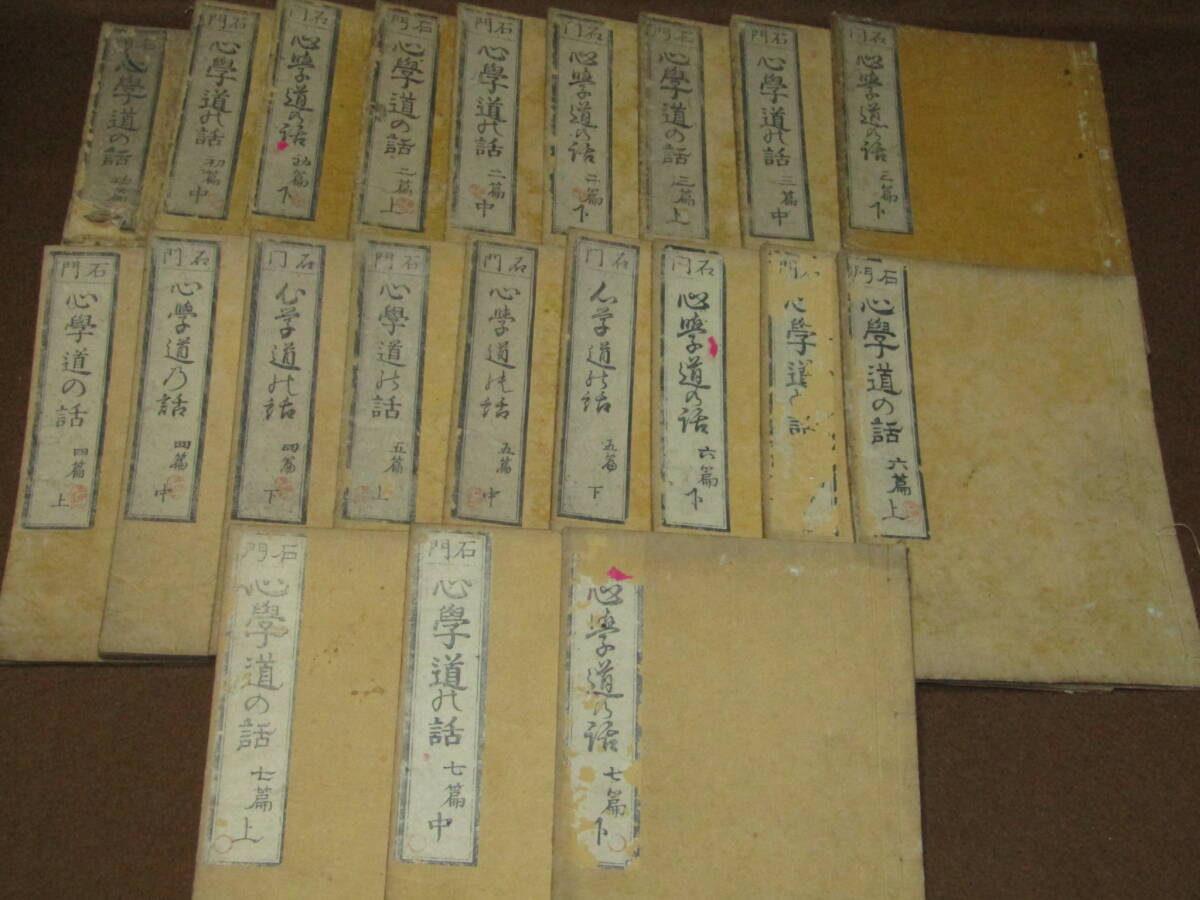 石門 心學道の話 初篇
石門 心學道の話 初篇 中
石門 心學道の話 初篇 下
石門 心學道の話 二篇 上
石門 心學道の話 二篇 中
石門 心學道の話 二篇 下
石門 心學道の話 三篇 上
石門 心學道の話 三篇 中
石門 心學道の話 三篇 下
石門 心學道の話 四篇 上
石門 心學道乃話 四篇 中
石門 心学道の話 四篇 下
石門 心學道の話 五篇 上
石門 心學道の話 五篇 中
石門 心学道の話 五篇 下
石門 心學道の話 六篇 下
石門 心學道
石門 心學道の話 六篇 上
石門 心學道の話 七篇 上
石門 心學道の話 七篇 中
心學道の話 七篇 下